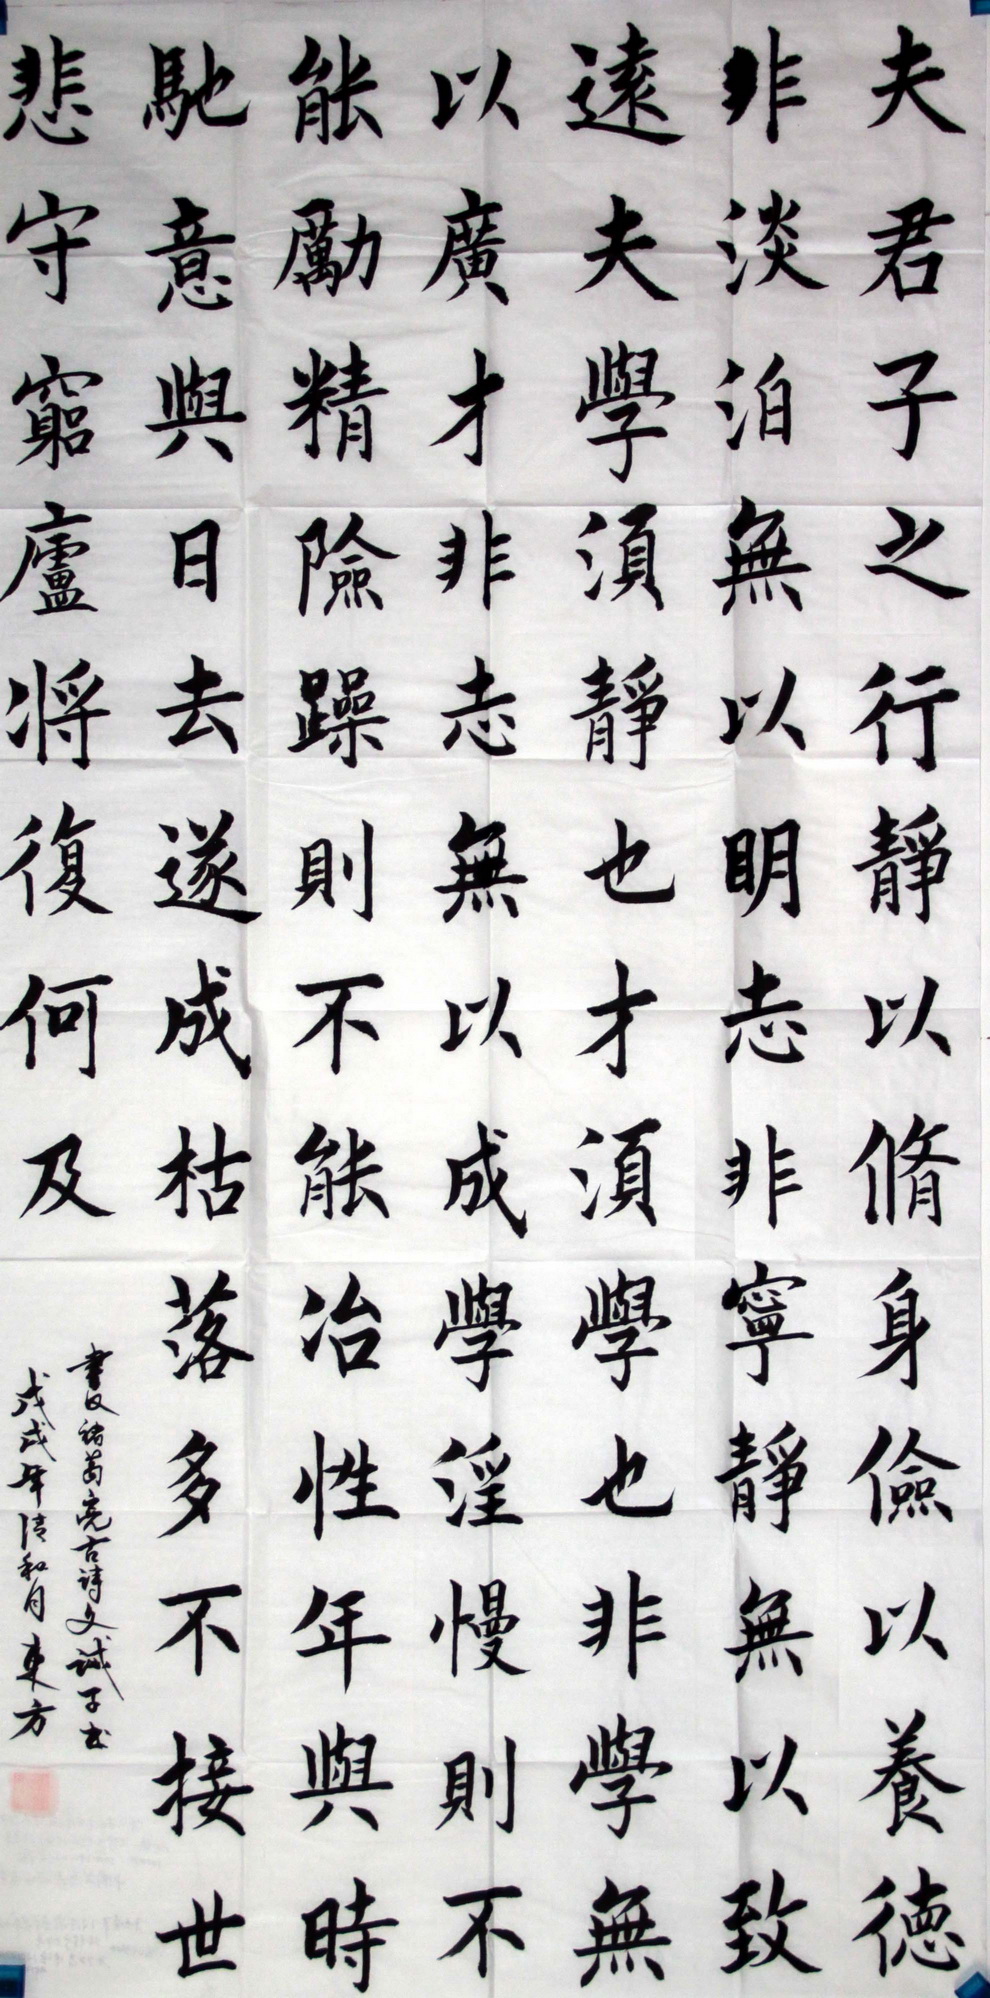 夫君子之行靜以脩身儉以養德
非淡泊無以明志非寧靜無以致
遠夫學須靜也才須學也非學無
以廣才非志無以成學淫慢則不
能勵精險躁則不能冶性年與時
馳意與日去遂成枯落多不接世
悲守窮廬將復何及
書諸葛亮古詩文誡子書
戊戌年清和月東方